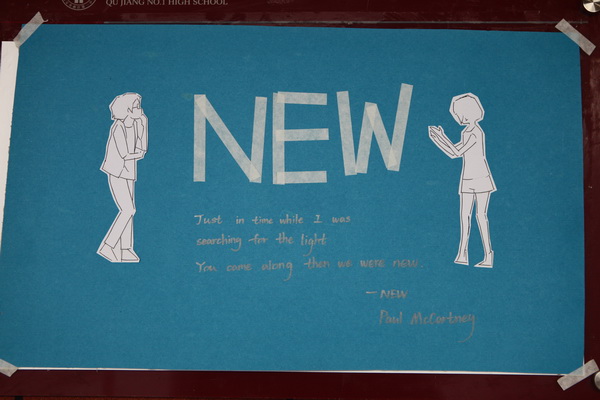 QU JIANG NO.1 HIGH SCHOOL
NEW
Just in time while I was
searching for the light
You came along then we were new.
— NEW
Paul McCartney